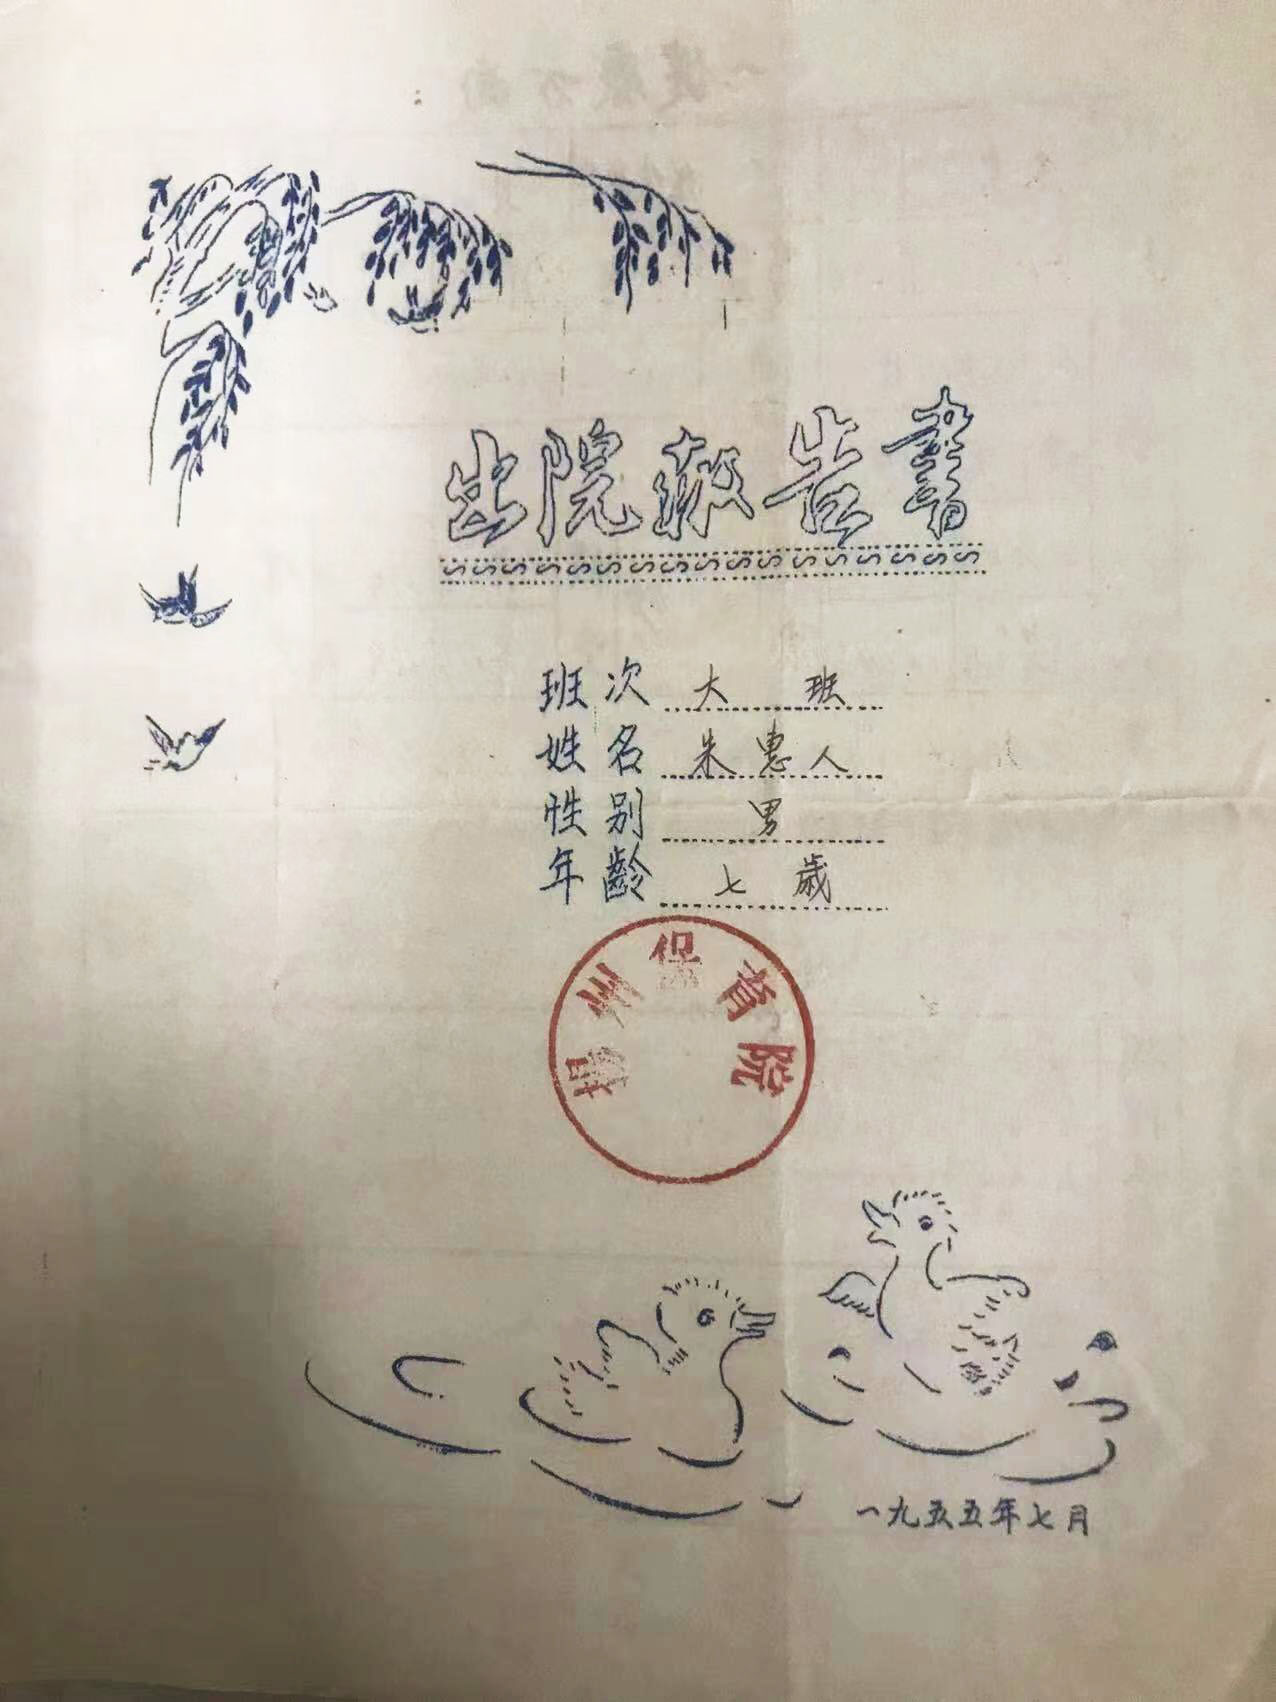 出院報告書
班次 大班
姓名 朱惠人
性别 男
年齡 七歲
揚州保育院
一九五五年七月